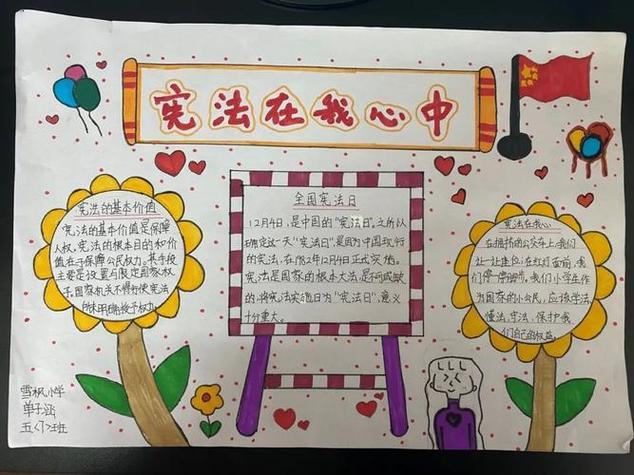 宪法在我心中
宪法的基本价值
宪法的基本价值是保障
人权。宪法的根本目的和价
值在于保障公民权力。其手段
主要是设置与限定国家权
子。国家机关不得行使宪法
所未明确授予权力
全国宪法日
12月4日,是中国的“宪法日”。之所以
确定这一天“宪法日”,是因为中国现行
的宪法,在1982年12月4日正式实施。
宪法是国家的根本大法,是不可或缺
的,将宪法实施日为“宪法日”,意义
十分重大。
宪法在我心
在拥挤的公交车上,我们
让一让座位;在红灯面前,我
们停一停脚步。我们小学生作
为国家的小公民,应该学法、
懂法、守法,保护我
们自己的权益。
雪枫小学
单子涵
五〈7〉班